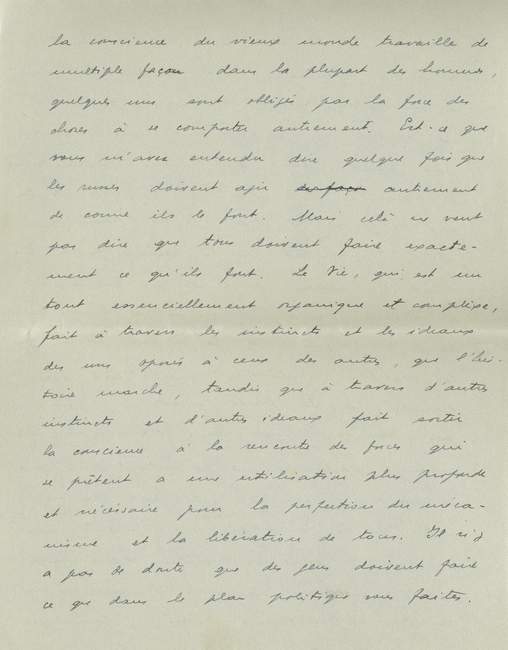 la conscience du vieux monde travaille de
multiple façon dans la plupart des hommes,
quelques uns sont obligés par la force des
choses à se comporter autrement. Est-ce que
vous m'avez entendu dire quelque fois que
les russes doivent agir autrement
de comme ils le font. Mais celà ne veut
pas dire que tous doivent faire exacte-
ment ce qu'ils font. La Vie, qui est un
tout essenciellement organique et complexe,
fait à travers les instincts et les ideaux
des uns oposés à ceux des autres, que l'his-
toire marche, tandis que à travers d'autres
instincts et d'autres ideaux fait sortir
la conscience à la rencontre des forces qui
se prêtent a une utilisation plus profonde
et nécéssaire pour la perfection du méca-
nisme et la libération de tous. Il n'y
a pas de doute que des gens doivent faire
ce que dans le plan politique vous faites.